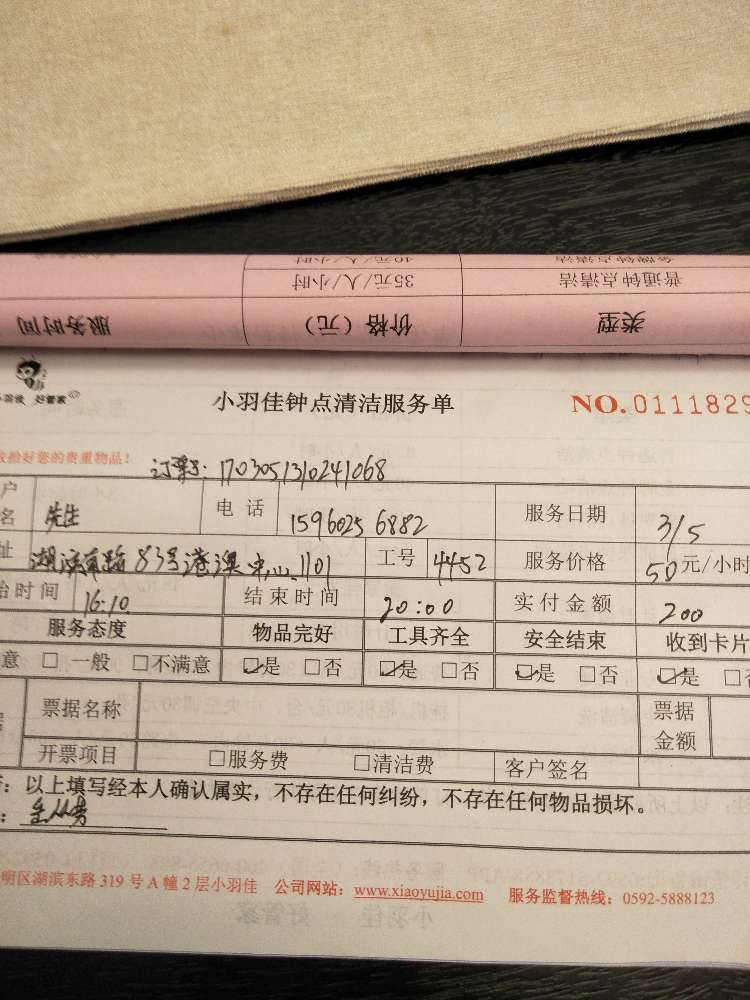 40元/人/小时
普通钟点清洁 35元/人/小时
类型 价格（元） 服务时间
好管家
小羽佳钟点清洁服务单 NO. 0111829
检好您的贵重物品！
1703051310241068
户名 先生 电话 15960256882 服务日期 3/5
址 湖滨南路83号港澳中心1101 工号 4452 服务价格 50元/小时
始时间 16:10 结束时间 20:00 实付金额 200
服务态度 物品完好 工具齐全 安全结束 收到卡片
意 □一般 □不满意 ☑是 □否 ☑是 □否 ☑是 □否 ☑是 □否
票据名称 票据金额
开票项目 □服务费 □清洁费 客户签名
：以上填写经本人确认属实，不存在任何纠纷，不存在任何物品损坏。
明区湖滨东路 319 号 A 幢 2 层小羽佳 公司网站：www.xiaoyujia.com 服务监督热线：0592-5888123